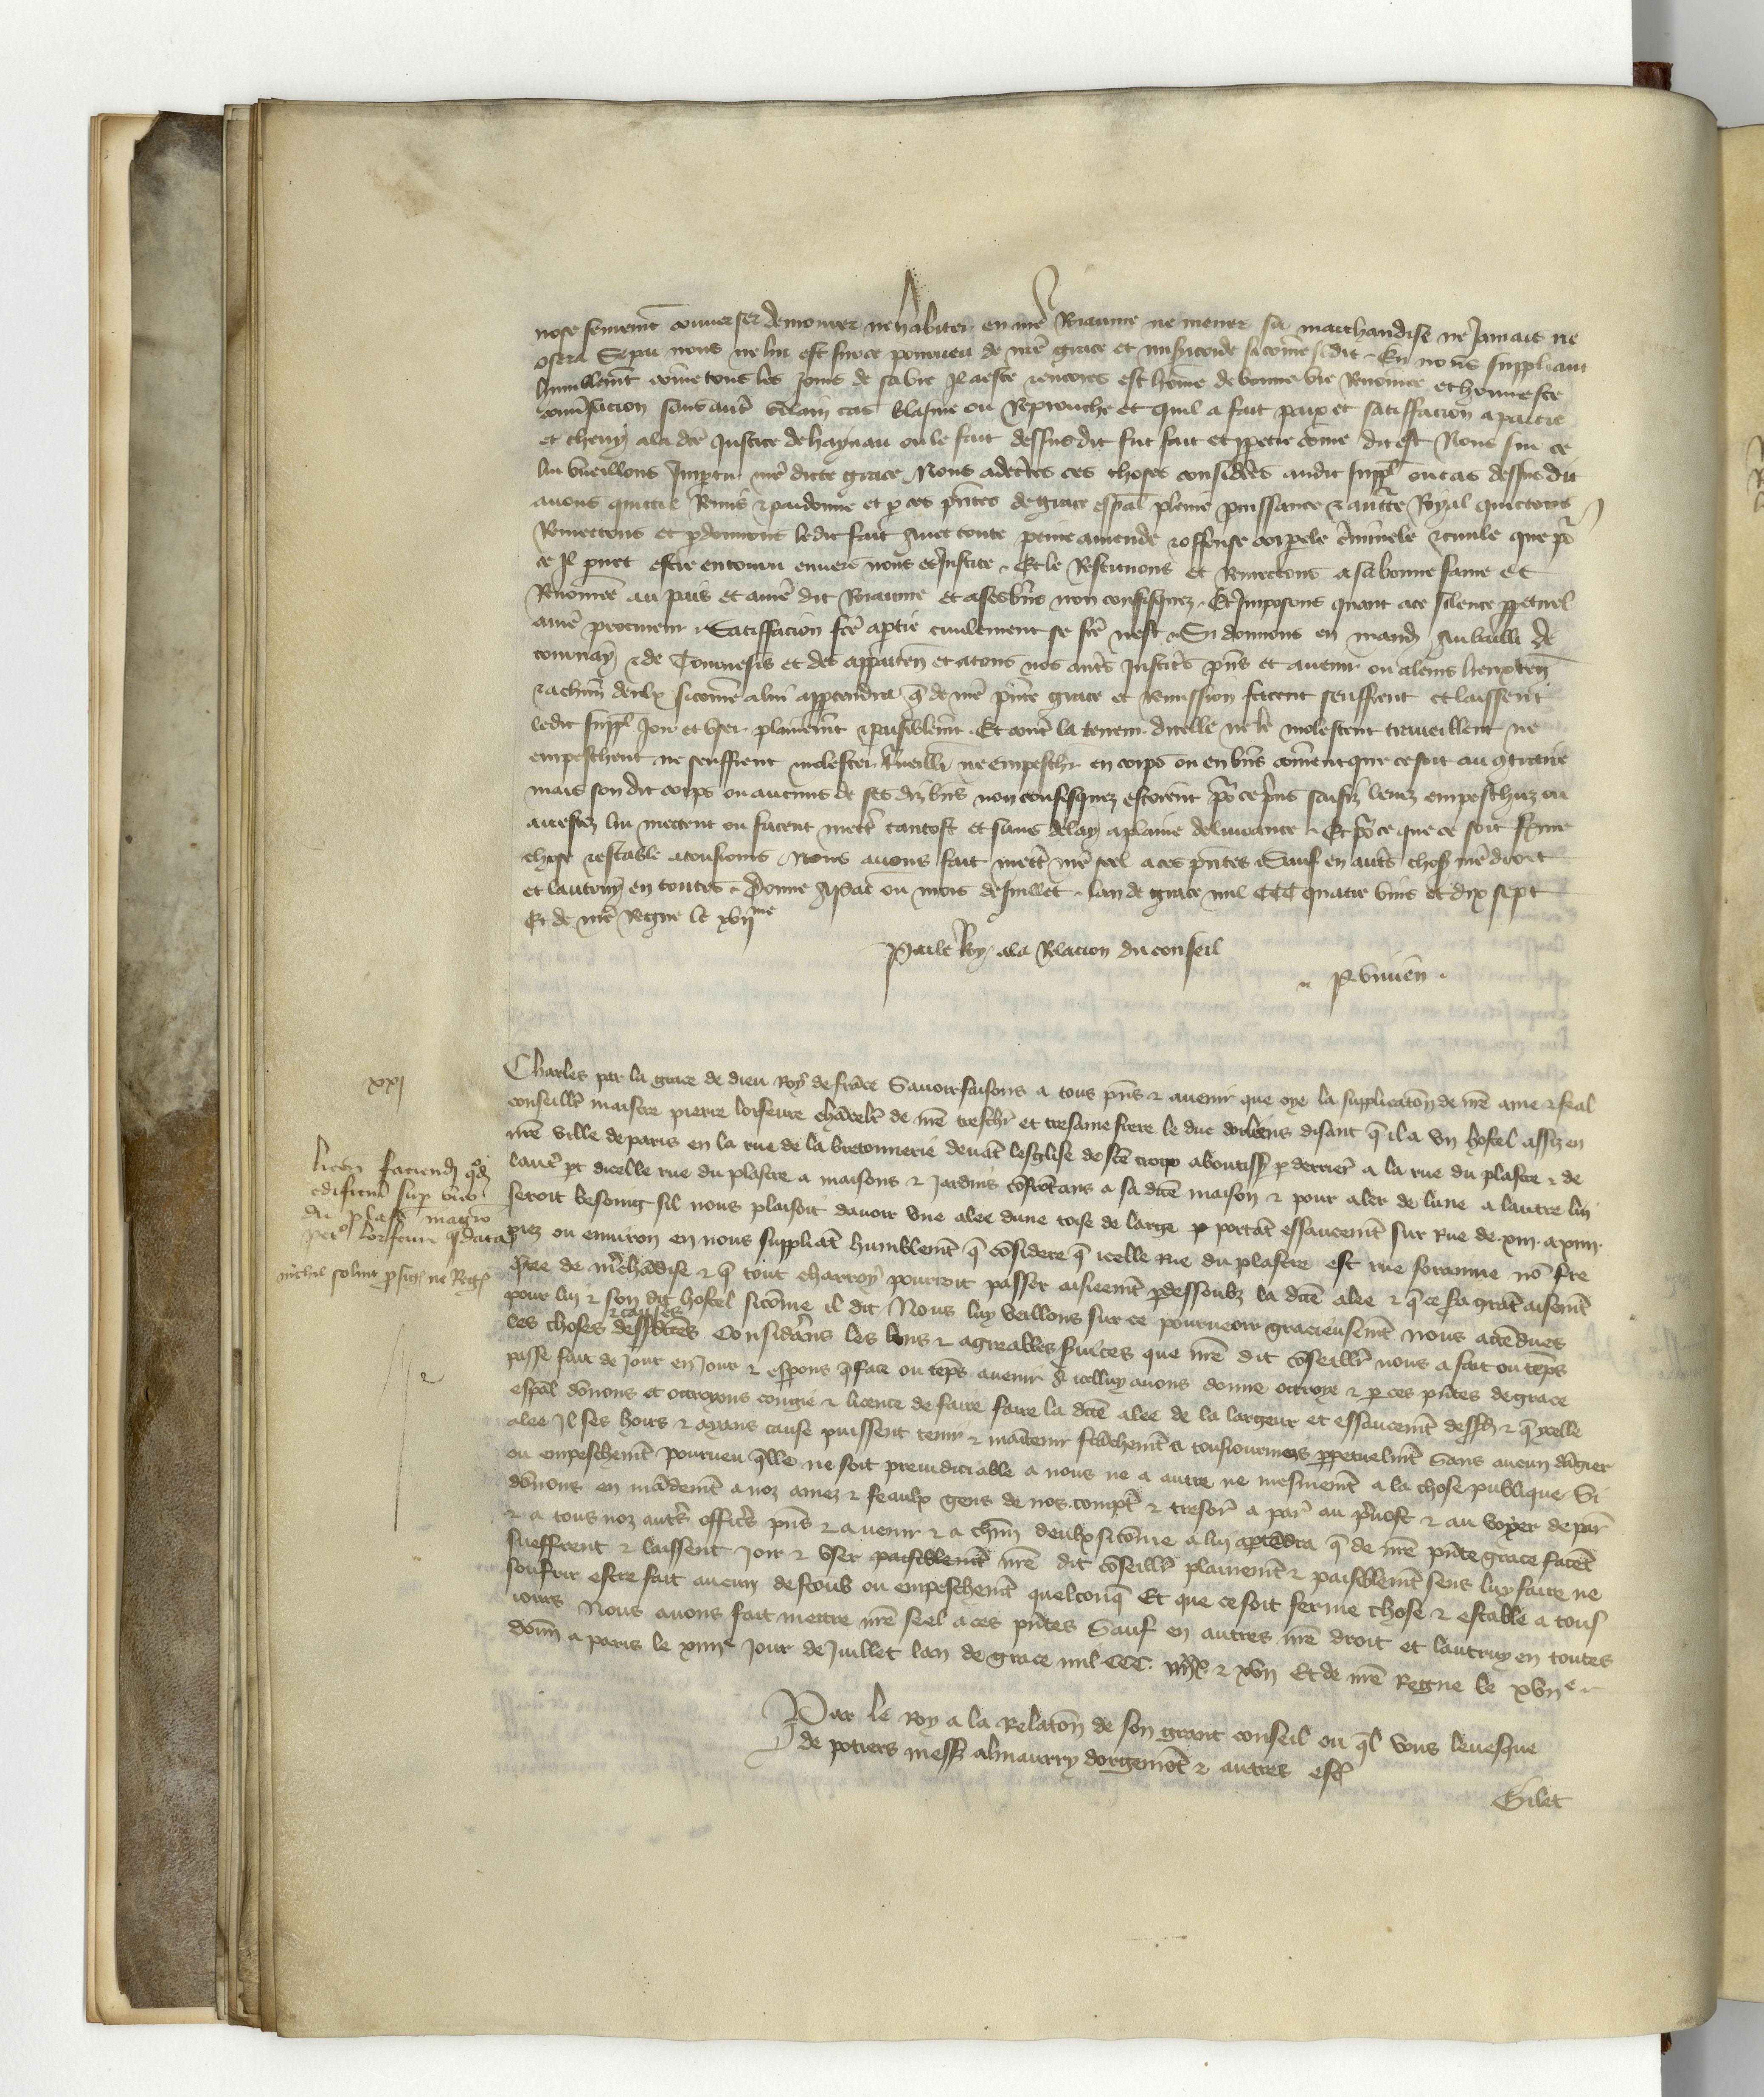 nose seurement converser demourer ne habiter en nr̄e Royaume ne mener sa marchandise ne Jamais ne
osera Se par nous ne lui est sur ce pourveu de nr̄e grace et misericorde sicom̄e il dit . En nous suppliant
humblemt̄ come tous les jours de sa vie Il a este et encores est hom̄e de bonne vie Renom̄ee et honneste
conv̄sacion sans autr̄ villain cas blasme ou Reprouche et quil a fait paix et satisfacion a partie
et a la dcē Justice de haynau ou le fait dessusdit fut fait et ꝑpetre come dit est Nous sur ce
lui vueillons Impartir nr̄e dicte grace Nous adecertes ces choses considerēs audit suppl̄ ou cas dessusdit
avons quictie Remis et pardonne et ꝑ ces pn̄tes de grace esp̄al pleine puissance et auctē Royal quictons
Remectons et ꝑdonnons ledit fait avec toute peine amende et offense corporele c̄minele et civile que pō
ce Il puet estre encouru envers nous et Justice . Et le Restituons et Remectons a sa bonne fame et
Renom̄ee au pais et a nr̄e dit Royaume et a ses biēs non confisquez . Et Imposons quant a ce silence ꝑpetuel
a nr̄e procureur . Satisfacion fcē a ꝑtie civilement se fcē nest . Si donnons en mandᷤ au bailli de
tournay et de Tournesis et des apparten̄ et a tous nos autr̄s Justic̄s pn̄s et avenir ou a leurs lieuxten̄
et a chūn deulx sicom̄e a lui appartendra q̄ de nr̄e pn̄te grace et Remission facent seuffrent et laissent
ledit suppl̄ Joir et user plainemt̄ et paisiblemt̄ . Et contr̄ la teneur dicelle ne le molestent travueillent ne
empeschent ne seuffrent molester tr̄veillr̄ ne empeschr̄ en corps ou en biēs com̄ent que ce soit au contraire
mais son dit corps ou aucuns de ses diz biēs non confisquez estoient pō ce prins saisiz levez empeschiez ou
arrestez lui mectent ou facent mectr̄ tantost et sans delay a plaine delivrance . Et pō ce que ce soit ferme
chose et estable a tousiours Nous avons fait mectr̄ nr̄e seel a ces pn̄tes . Sauf en autr̄s choses nr̄e droit
et lautruy en toutes . Donne A paris ou mois de Juillet . lan de grace mil CCC quatre vins et dix sept
Et de nr̄e Regne le xvii me
Par le Roy . a la Relacion du conseil
P. vivien .
xxj
Charles par la grace de dieu Roy de frāce Savoir faisons a tous pn̄s et avenir que oye la supplicatōn de nr̄e ame et feal
conseillr̄ maistre pierre lorfevre chācelr̄ de nr̄e treschr̄ et tresame frere le duc dorleēns disant q̄ il a un hostel assiz en
nr̄e ville de paris en la rue de la bretonnerie devāt lesglise de scē croix aboutissᷤ ꝑ derrier̄ a la rue du plastre et de
lautr̄ pt dicelle rue du plastre a maisons et jardins cōfrōtans a sa dcē maison et pour aler de lune a lautre luy
seroit besoing sil nous plaisoit davoir une alee dune toise de large et portāt essaucemt̄ sur rue de xiii a xiiii
piez ou environ en nous suppliāt humblemt̄ q̄ cōsidere q̄ icelle rue du plastre est rue foranne nō frē
q̄tee de m̄chādise et q̄ tout charroy pourroit passer aisieemt̄ ꝑdessoubz la dcē alee et q̄ ce sa grāt aisemt̄
pour lui et son dit hostel sicōme il dit Nous luy veillons sur ce pourveoir gracieusemt̄ nous attēdues
les choses et causes dessdictēs Considerās les bons et agreables s̄vices que nr̄e dit cōseillr̄ nous a fait ou tēps
passe fait de jour en jour et esperons q̄ face ou tēps avenir A icelluy avons donne ottroye et ꝑ ces pn̄tes de grace
esp̄al dōnons et ottroyons congie et licence de faire faire la dcē alee de la largeur et essaucemt̄ dessᷤ et q̄ ycelle
alee Il ses hoirs et ayans cause puissent tenir et maītenir frāchemt̄ a tousiourmais ꝑpetuelmt̄ Sans aucun dāgier
ou empeschemt̄ pourveu q̄lle ne soit preiudiciable a nous ne a autre ne mesmemt̄ a la chose publique Si
dōnons en mādemt̄ a noz amez et feaulx gens de nos compt̄ et tresor̄ a par̄ au p̄vost et au voyer de par̄
et a tous noz autr̄s offic̄s pn̄s et avenir et a chūn deulx sicōme a lui aptēdra q̄ de nr̄e pn̄te grace facēt
sueffrent et laissent joir et user paisiblemt̄ nr̄e dit cōseillr̄ plainemt̄ et paisiblemt̄ sens luy faire ne
soufrir estre fait aucun destourb ou empeschemt̄ quelconq̄ Et que ce soit ferme chose et estable a tous
jours Nous avons fait mettre nr̄e seel a ces pn̄tes Sauf en autres nr̄e droit et lautruy en toutes
Donn̄ a paris le xiiiie jour de Juillet lan de grace mil CCC. iiiixx et xvii Et de nr̄e Regne le xviie
Par le Roy a la Relatōn de son grant conseil ou q̄l vous levesque
de poitiers messᷤ almaurry dorgemōt et autres estᷤ
Gilet
licen̄ faciendᷤ qodᷤ
edificiū sup vico
du plastᷤ mag̅ro
petro lorfevre
nichil solvit